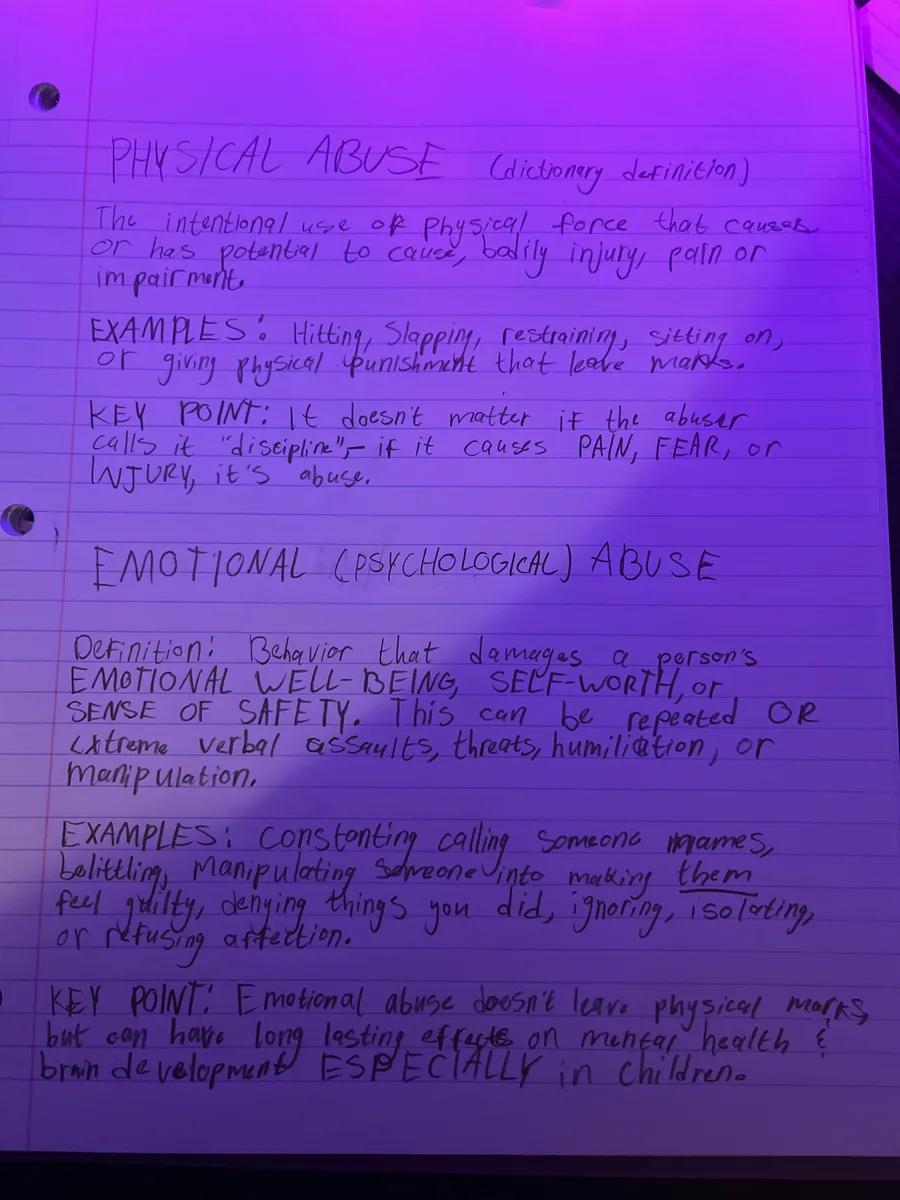 PHYSICAL ABUSE (dictionary definition)
The intentional use of physical force that causes
or has potential to cause, bodily injury, pain or
impairment.
EXAMPLES: Hitting, Slapping, restraining, sitting on,
or giving physical punishment that leave marks.
KEY POINT: It doesn't matter if the abuser
calls it "discipline", - if it causes PAIN, FEAR, or
INJURY, it's abuse.
EMOTIONAL (PSYCHOLOGICAL) ABUSE
Definition: Behavior that damages a person's
EMOTIONAL WELL-BEING, SELF-WORTH, or
SENSE OF SAFETY. This can be repeated OR
extreme verbal assaults, threats, humiliation, or
manipulation.
EXAMPLES: Constanting calling someone names,
belittling, manipulating someone into making them
feel guilty, denying things you did, ignoring, isolating,
or refusing affection.
KEY POINT: Emotional abuse doesn't leave physical marks,
but can have long lasting effects on mental health &
brain development ESPECIALLY in children.